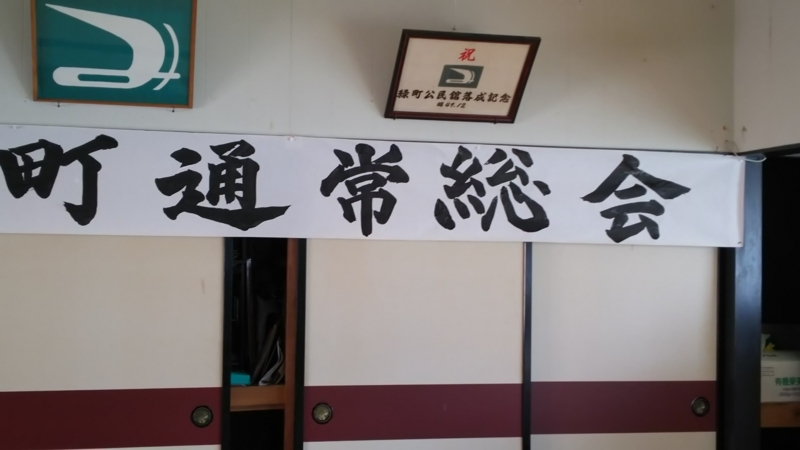 祝
緑町公民館落成記念
町通常総会